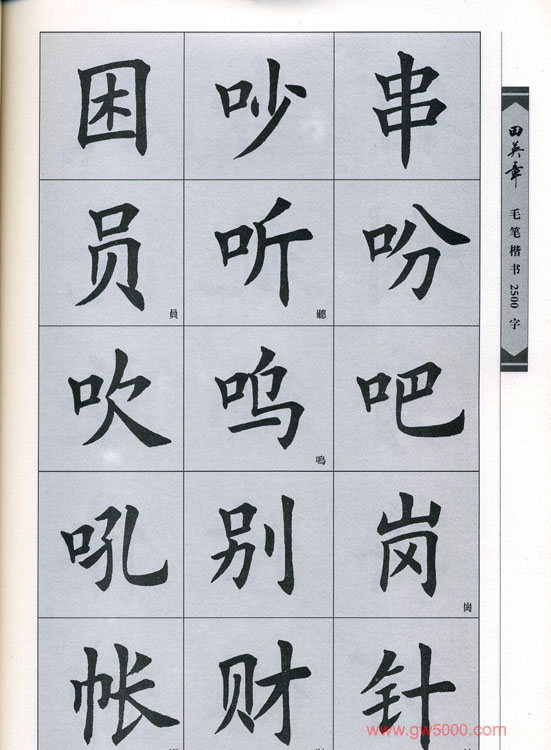 困 吵 串
员 員 听 聽 吩
吹 呜 嗚 吧
吼 别 岗 崗
帐 财 针
田英章 毛笔楷书2500字
www.gw5000.com